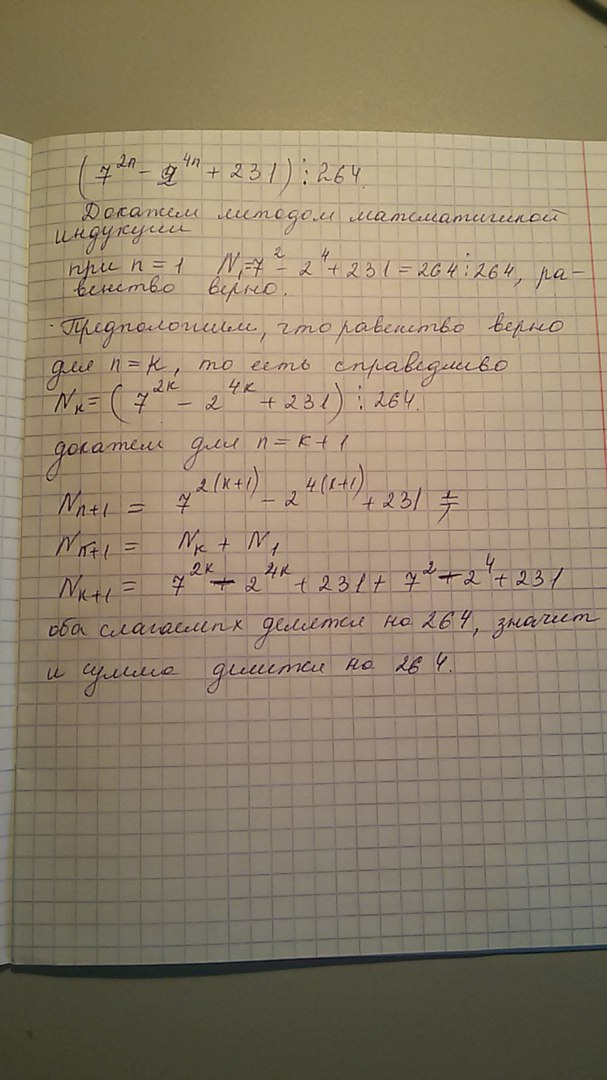 (7^{2n} - 2^{4n} + 231) ⋮ 264.
Докажем методом математичикой
индукции
при n = 1 N₁=7² - 2⁴ + 231 = 264 ⋮ 264, ра-
венство верно.
Предположим, что равенство верно
для n = k, то есть справедливо
N_k = (7^{2k} - 2^{4k} + 231) ⋮ 264.
докажем для n = k + 1
N_{n+1} = 7^{2(k+1)} - 2^{4(k+1)} + 231
N_{n+1} = N_k + N_1
N_{k+1} = 7^{2k} - 2^{4k} + 231 + 7² - 2⁴ + 231
оба слагаемых делятся на 264, значит
и сумма делится на 264.